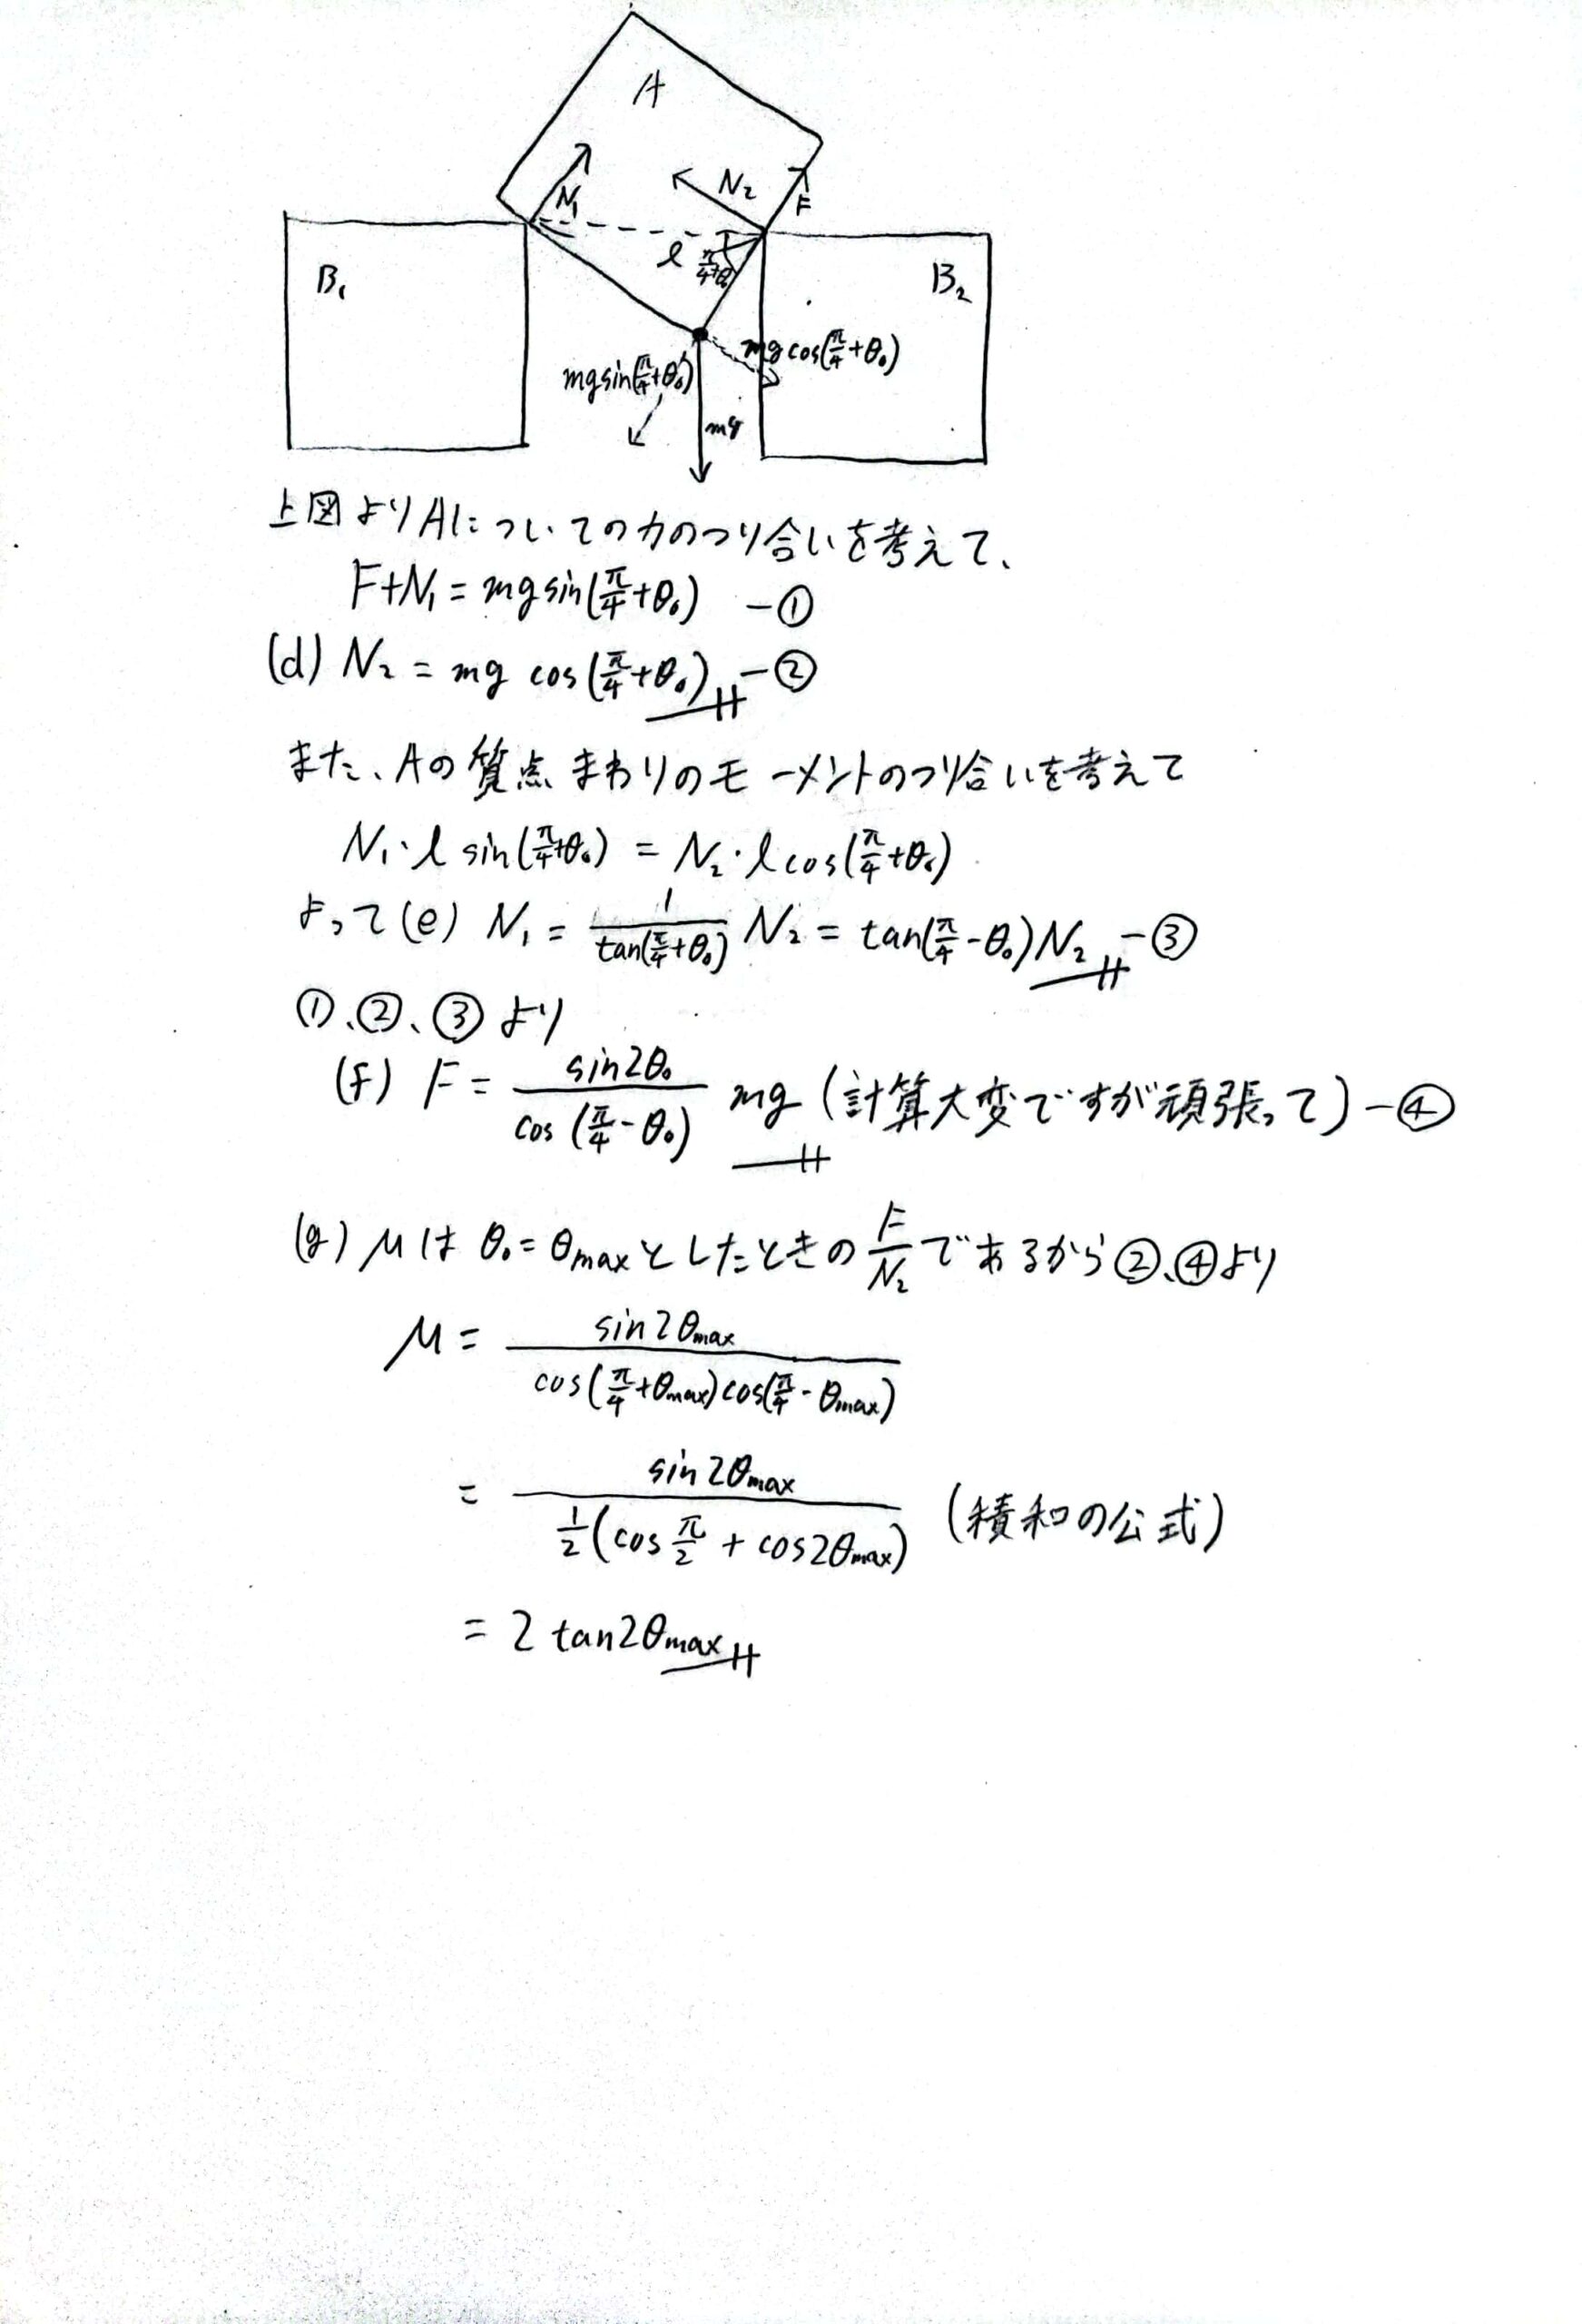 A
N₁
N₂
F
B₁
l
π/4+θ₀
B₂
mg sin(π/4+θ₀)
mg cos(π/4+θ₀)
mg
上図よりAについての力のつり合いを考えて、
F+N₁ = mg sin(π/4+θ₀) -①
(d) N₂ = mg cos(π/4+θ₀) -②
また、Aの質点まわりのモーメントのつり合いを考えて
N₁・l sin(π/4+θ₀) = N₂・l cos(π/4+θ₀)
よって(e) N₁ = 1/tan(π/4+θ₀) N₂ = tan(π/4-θ₀)N₂ -③
①、②、③より
(f) F = sin2θ₀/cos(π/4-θ₀) mg (計算大変ですが頑張って) -④
(g) μは θ₀=θmaxとしたときの F/N₂ であるから②、④より
μ = sin2θmax/cos(π/4+θmax)cos(π/4-θmax)
= sin2θmax/½(cos π/2 + cos2θmax) (積和の公式)
= 2 tan2θmax